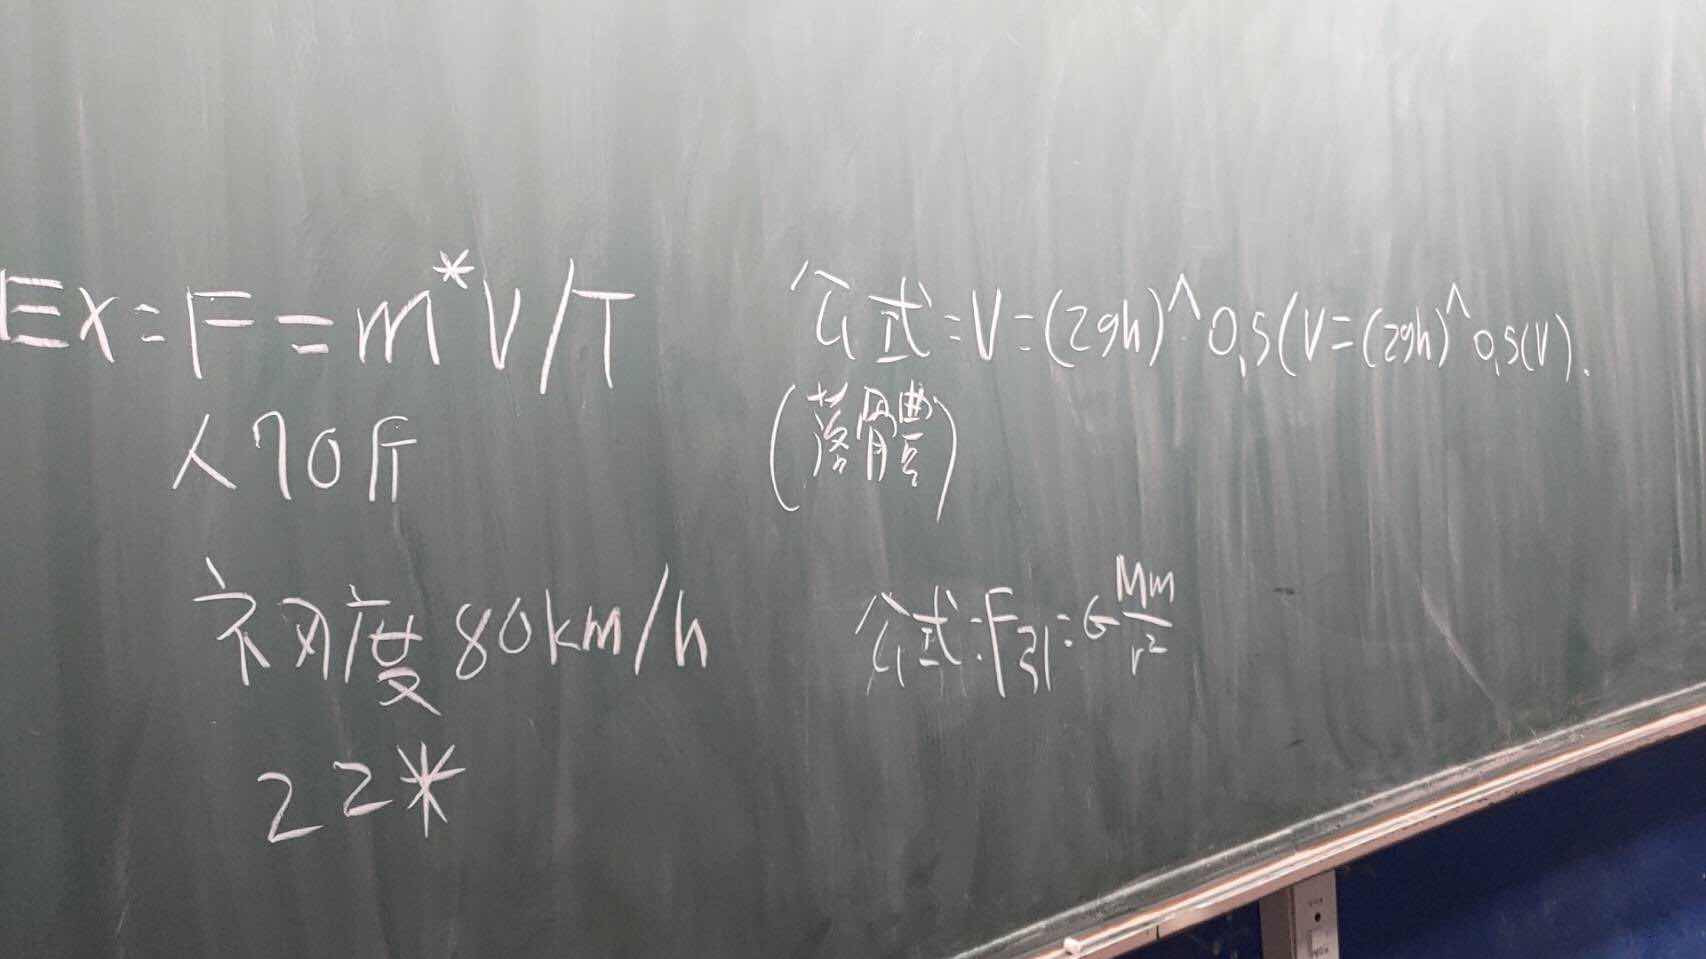 Ex=F=m*V/T
人70斤
初度80km/h
22*
公式=V=(2gh)^0.5(V=(2gh)^0.5(V).
(落體)
公式:F引=G Mm/r²